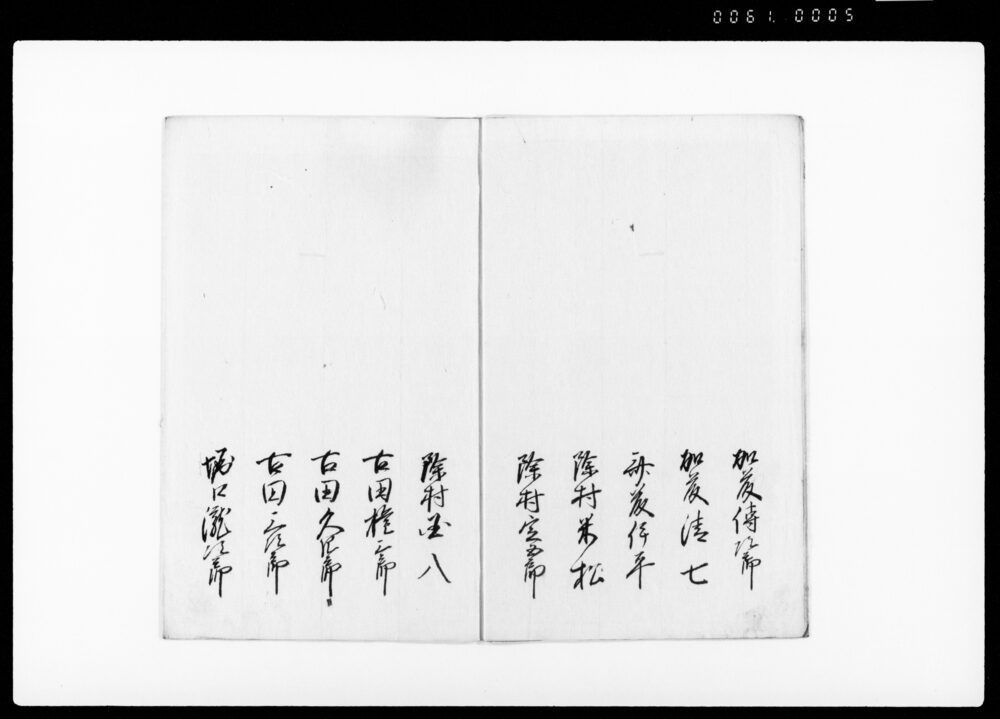 0061.0005
加藤傳次郎
加藤清七
加藤伊平
除村米松
除村定五郎
除村国八
古田権三郎
古田久四郎
古田三次郎
堀口瀧次郎